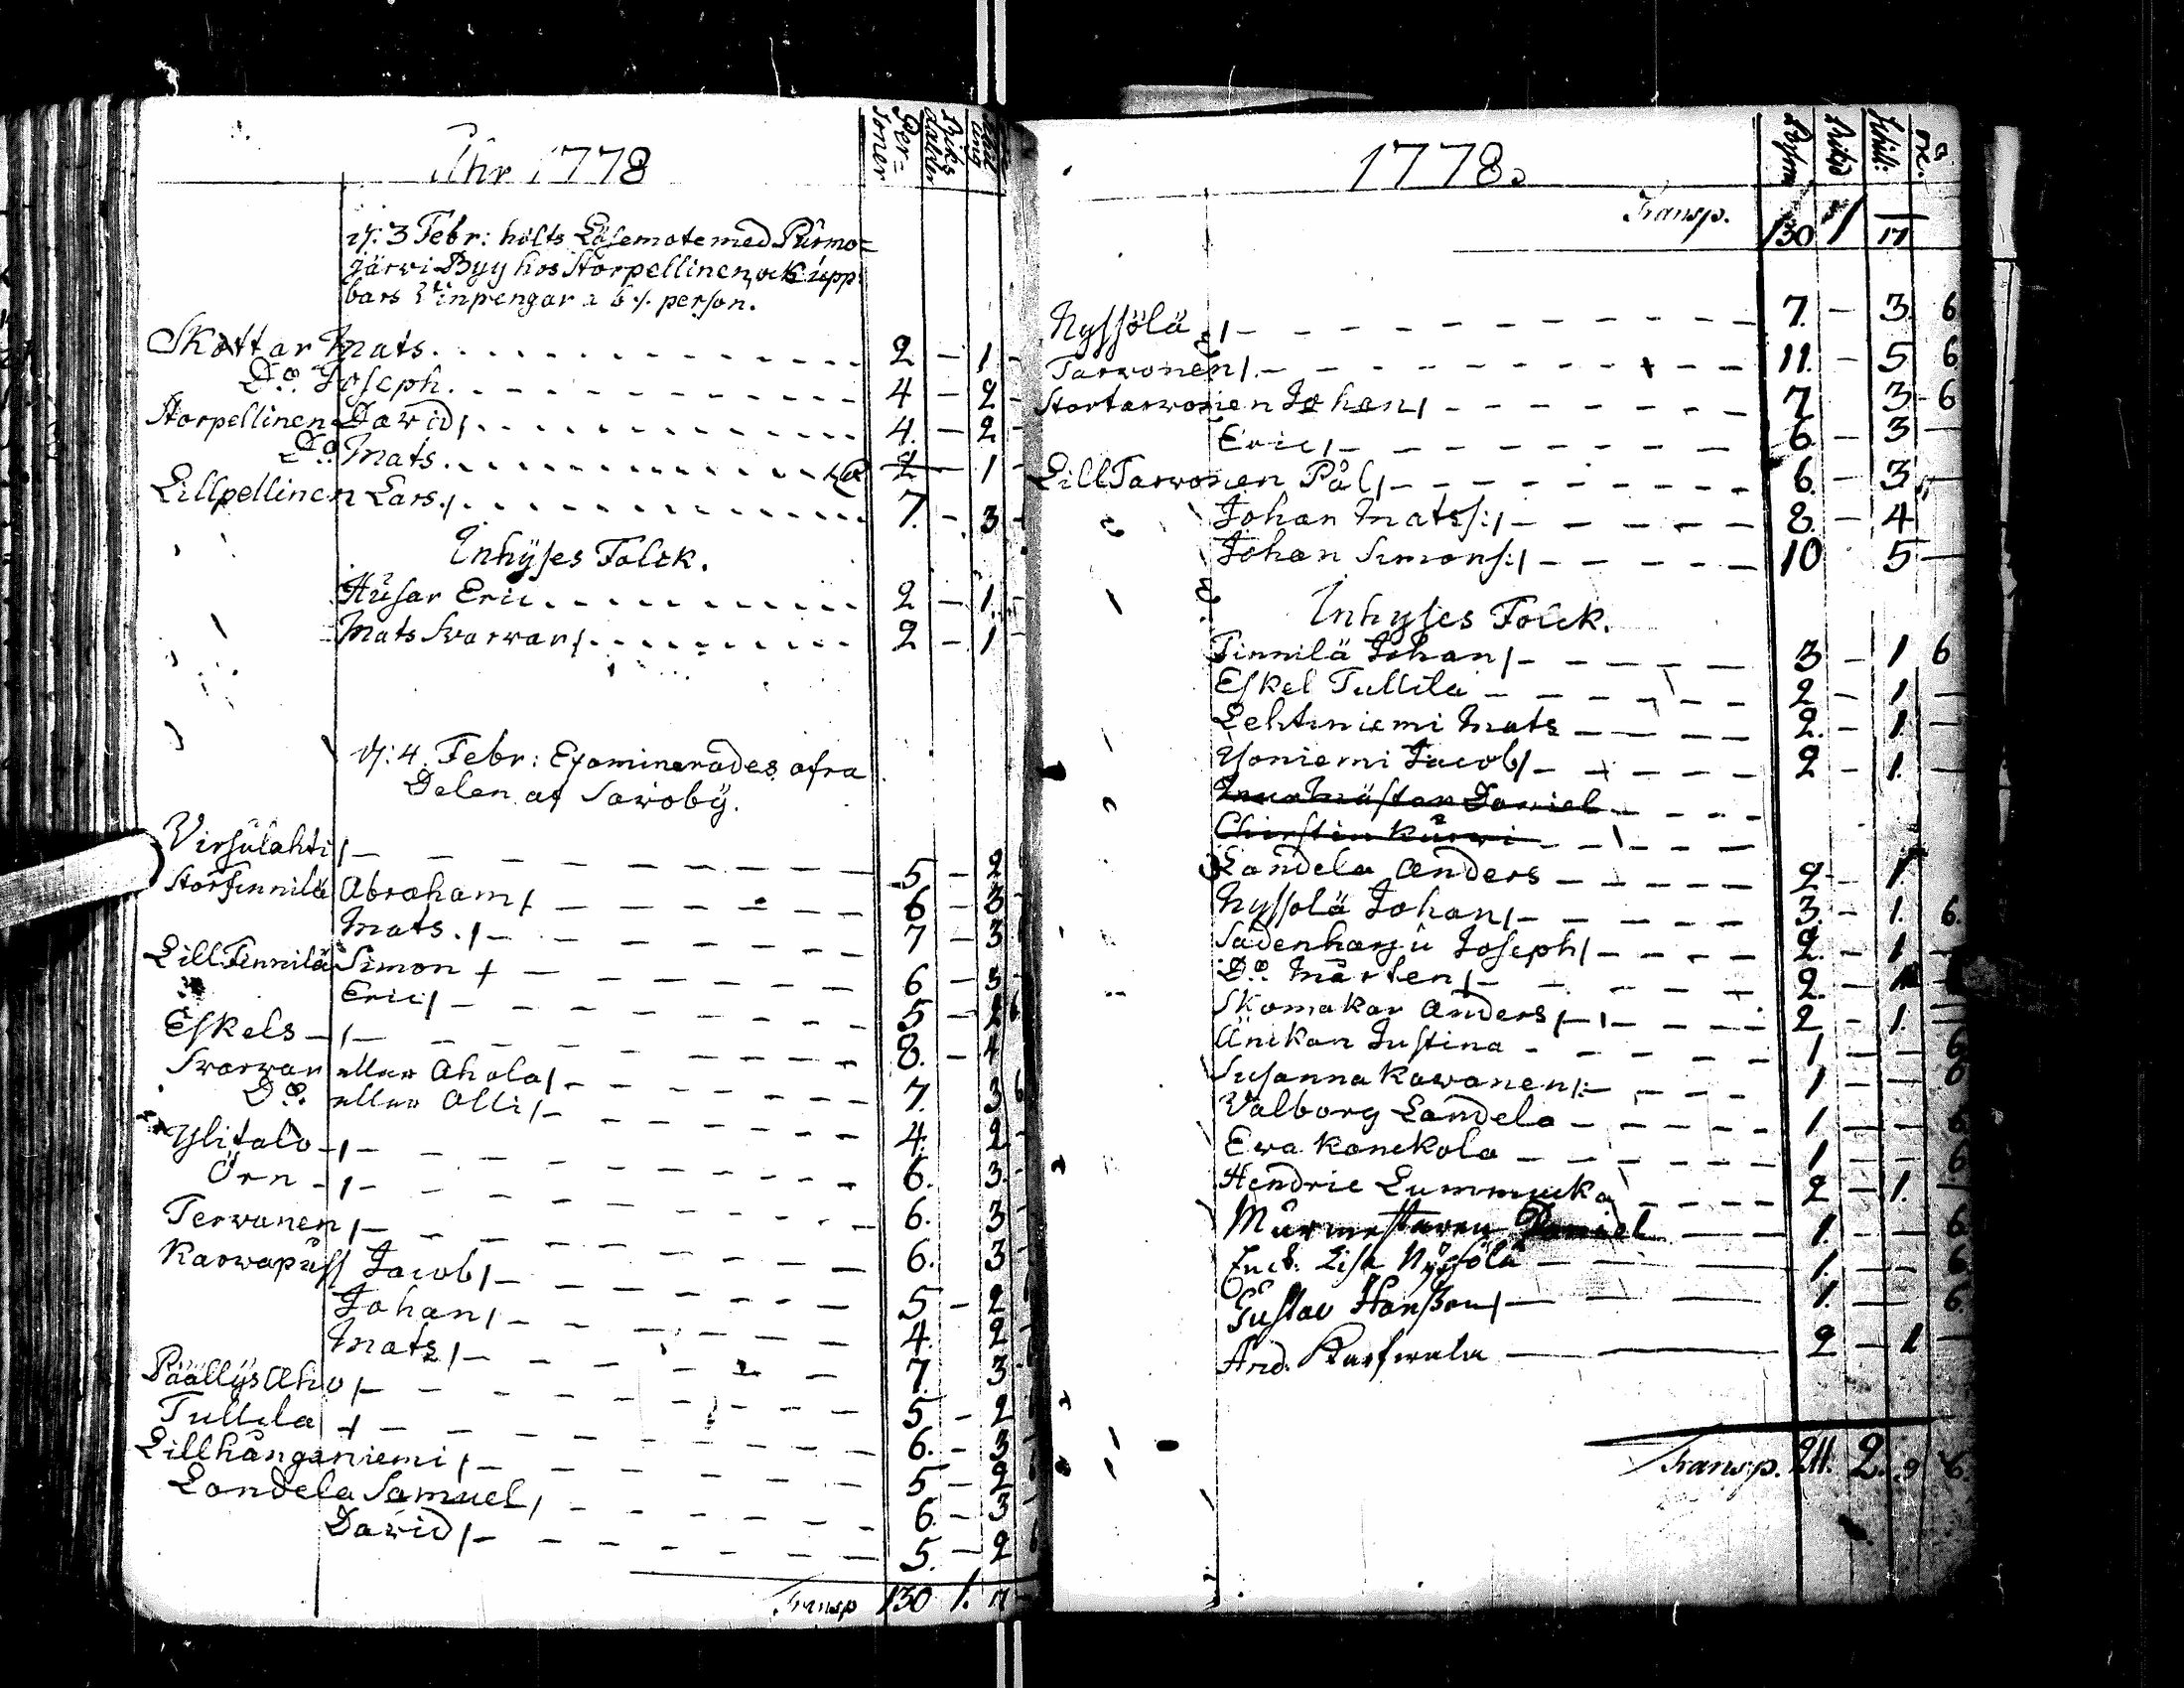 Åhr 1778
Per= soner
Riks daler
d: 3 Febr: hölts Läsemöte med Purmo=
järvi Byy hos Storpellinen, ock upp
bars Vinpengar a 6 /. person.
Skottar Mats. 2 - 1 -
Do. Joseph. 4 - 2 -
Storpellinen David/. 4. - 2 -
Do. Mats. 2 - 1 -
Lillpellinen Lars./. 7. - 3 -
Inhÿses Folck.
Husar Eric. 2 - 1. -
Mats Svarvar/. 2 - 1 -
d: 4. Febr: Examinerades öfra
Delen af Savobÿ.
Virsulahti/- 5 - 2
Storfinnilä Abraham/ 6 - 3 -
Mats./- 7 - 3
LillFinnilä Simon + 6 - 3
Eric/- 5 - 2 6
Eskels -/- 8. - 4
Svarvar eller Ahola/- 7. 3 6
Do. eller Olli/- 4. 2 -
Ylitalo -/- 6. 3 -
Örn -/- 6. 3 -
Tervanen/- 6. 3
Karvapuss Jacob/- 5 - 2
Johan/- 4. 2
Mats/- 7. 3
Päällÿs Aho/- 5 - 2
Tullila + - 6. - 3
Lillhånganiemi/- 5 - 2
Landela Samuel/ 6. - 3
David/- 5. - 2
Transp 130 1. 17 -
1778.
Person
Riksd
Skill:
ör.
Transp. 130 1 17
Nyssölä/- 7. - 3. 6
Tarvonen/.- 11. - 5 6
Stortarvonen Johan/ 7 3 - 6
Eric/- 6. - 3 -
LillTarvonen Pål/- 6. - 3 -
Johan Matss:/- 8. - 4
Johan Simons:/- 10 5 -
Inhyses Folck.
Finnilä Johan/- 3 - 1 6
Eskel Tullila - 2 - 1 -
Lehtiniemi Mats - 2. - 1. -
Yoniemi Jacob/- 2 - 1. -
Murmästar Daniel
Chirstin Kurvi
Landela Anders - 2 - 1.
Nyssölä Johan/- 3. - 1. 6.
Sadenharju Joseph/- 2. - 1 -
Do. Mårten/- 2. - 1 -
Skomakar Anders/-/- 2 - 1. -
Änkan Justina - 1 - - 6
Susanna Kavanen/:- 1 - - 6
Valborg Landela - 1 - - 6
Eva Kanckola - 1 - - 6
Hendric Lummucka 2 - 1. -
Murmestaren Daniel 1. - 6
Lisa Nyssölä - 1. - 6
Gustav Hansson/- 1. - 6.
And. - 2 - 1 -
Transp. 211. 2. 9 6.